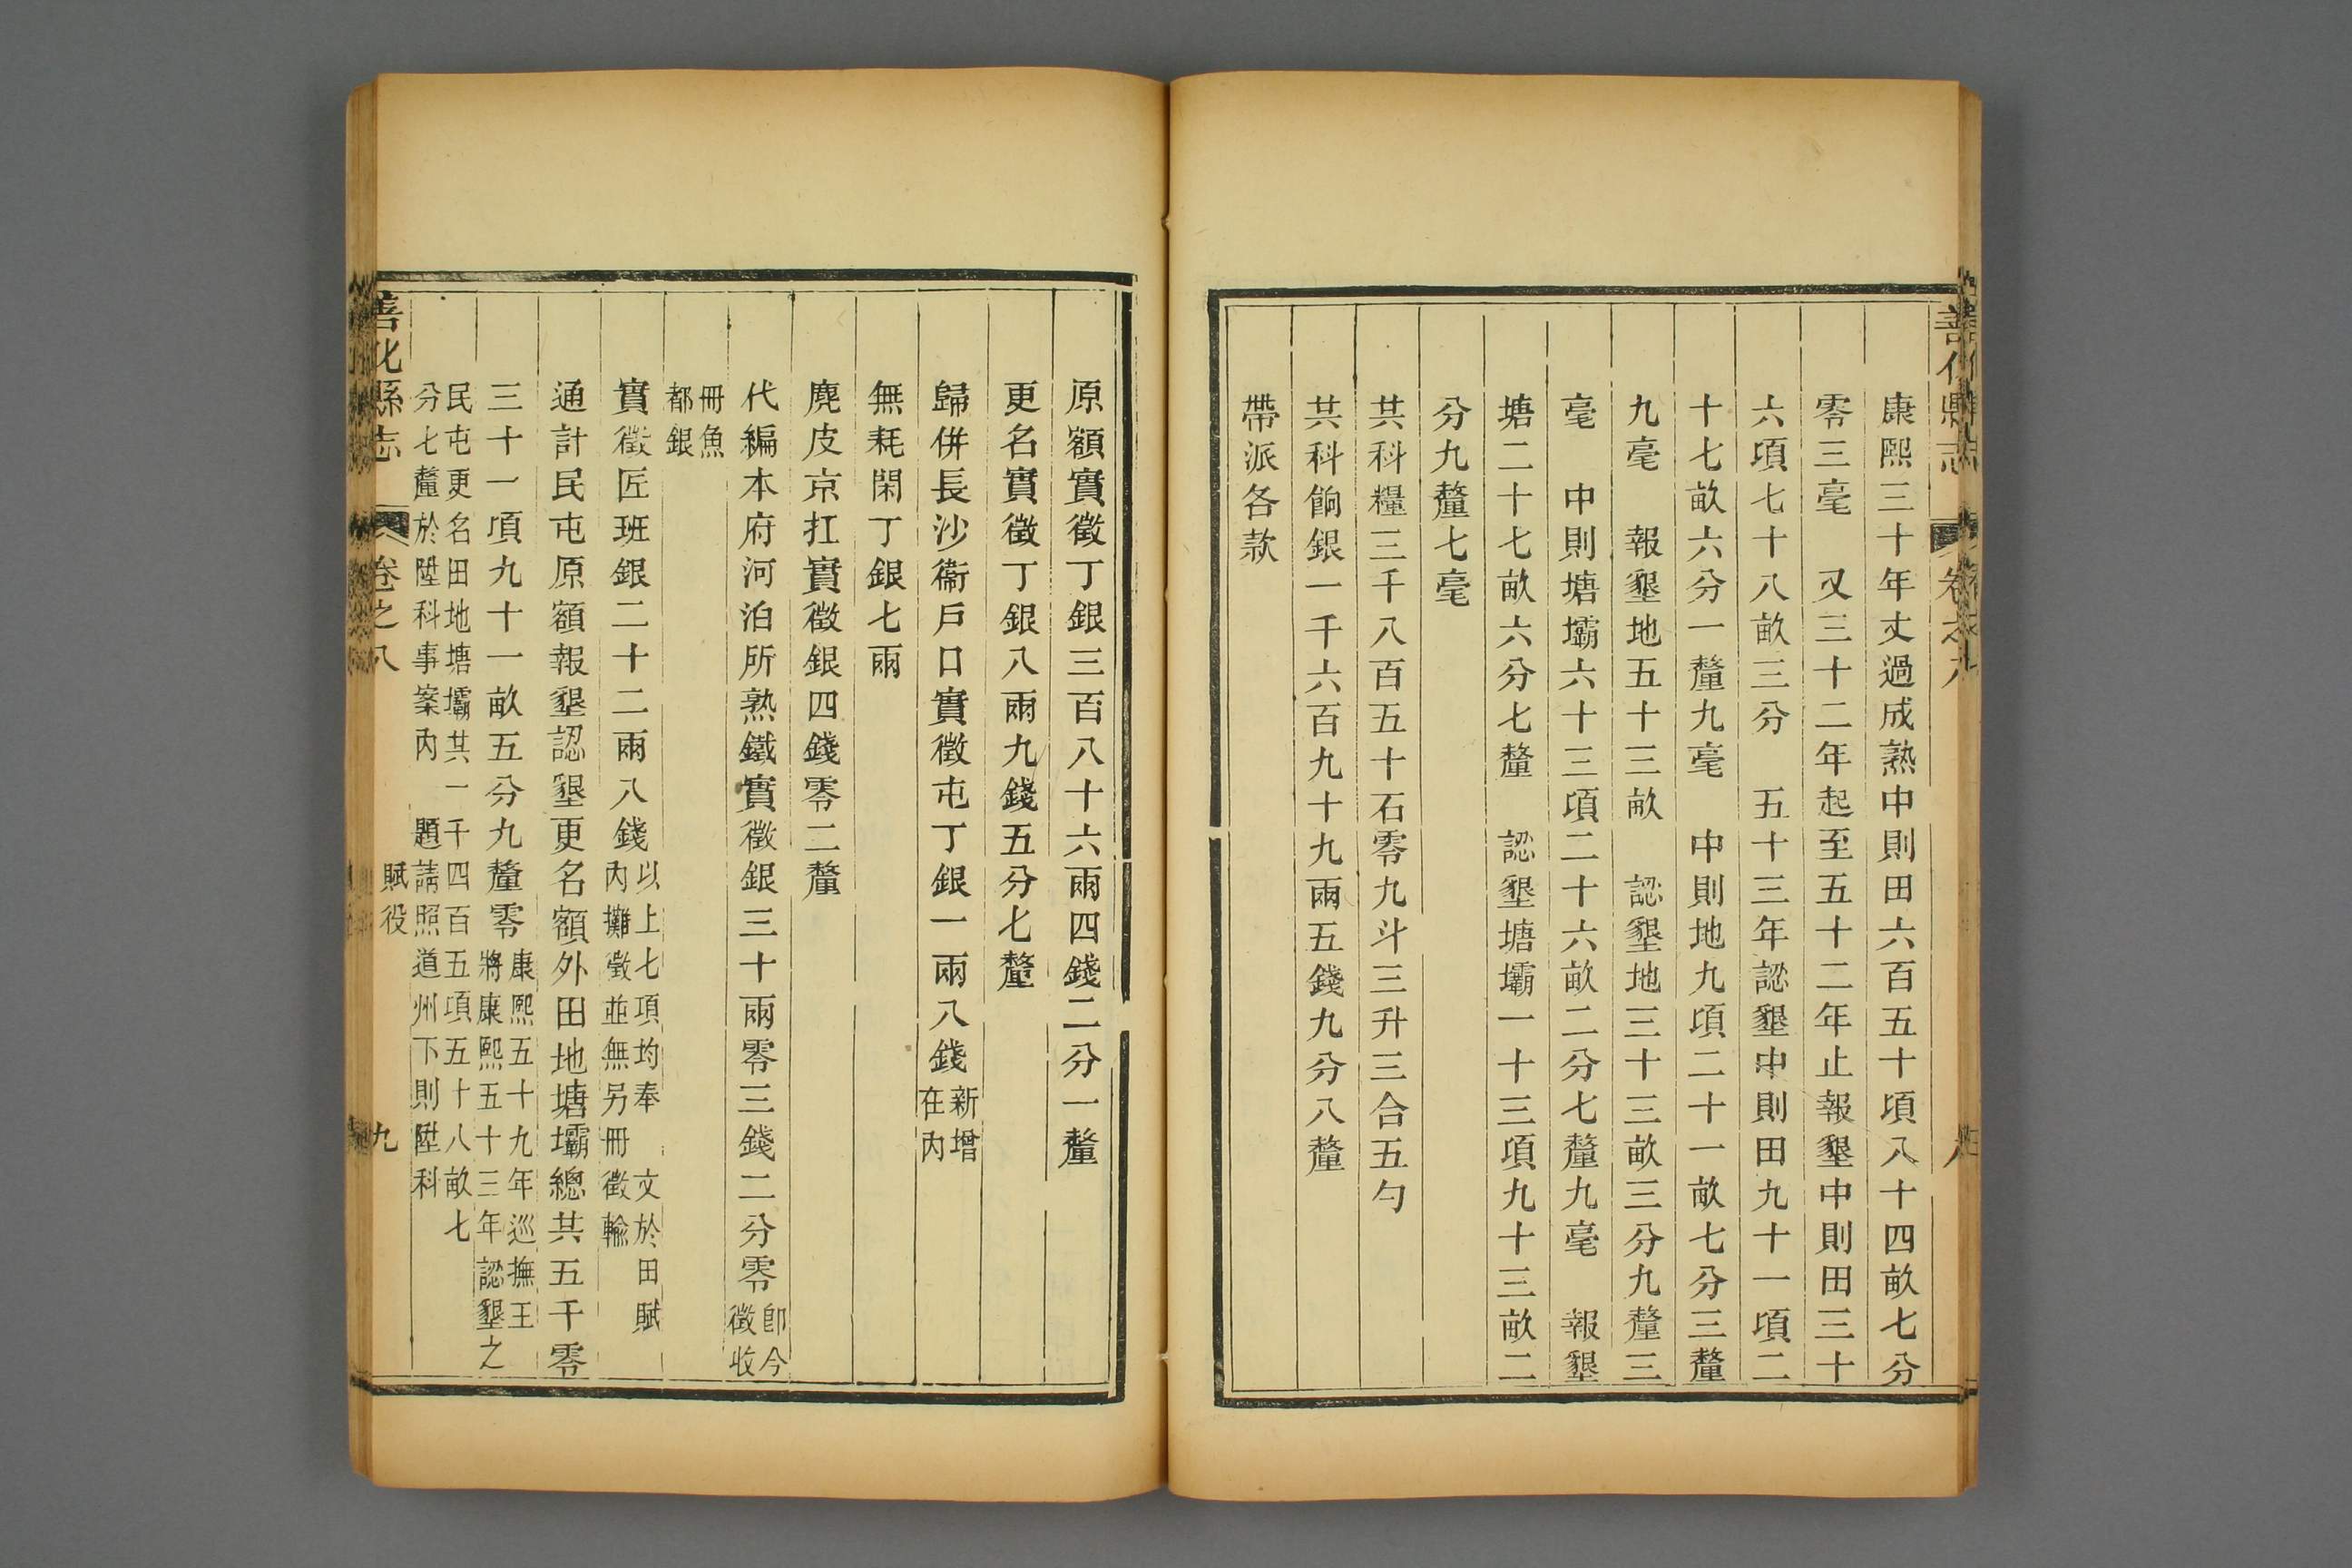 善化縣志 卷之八 八
康熙三十年丈過成熟中則田六百五十頃八十四畝七分
零三毫 又三十二年起至五十二年止報墾中則田三十
六項七十八畝三分 五十三年認墾中則田九十一頃二
十七畝六分一釐九毫 中則地九項二十一畝七分三釐
九毫 報墾地五十三畝 認墾地三十三畝三分九釐三
毫 中則塘壩六十三項二十六畝二分七釐九毫 報墾
塘二十七畝六分七釐 認墾塘壩一十三項九十三畝二
分九釐七毫
共科糧三千八百五十石零九斗三升三合五勺
共科餉銀一千六百九十九兩五錢九分八釐
帶派各款
原額實徵丁銀三百八十六兩四錢二分一釐
更名實徵丁銀八兩九錢五分七釐
歸併長沙衞戶口實徵屯丁銀一兩八錢新增在內
無耗閑丁銀七兩
麂皮京扛實徵銀四錢零二釐
代編本府河泊所熟鐵實徵銀三十兩零三錢二分零卽今徵收
冊魚都銀
實徵匠班銀二十二兩八錢以上七項均奉 文於田賦內攤徵並無另冊徵輸
通計民屯原額報墾認墾更名額外田地塘壩總共五千零
三十一項九十一畝五分九釐零康熙五十九年巡撫王將康熙五十三年認墾之
民屯更名田地塘壩共一千四百五項五十八畝七分七釐於陞科事案內 題請照道州下則陞科
善化縣志 卷之八 賦役 九